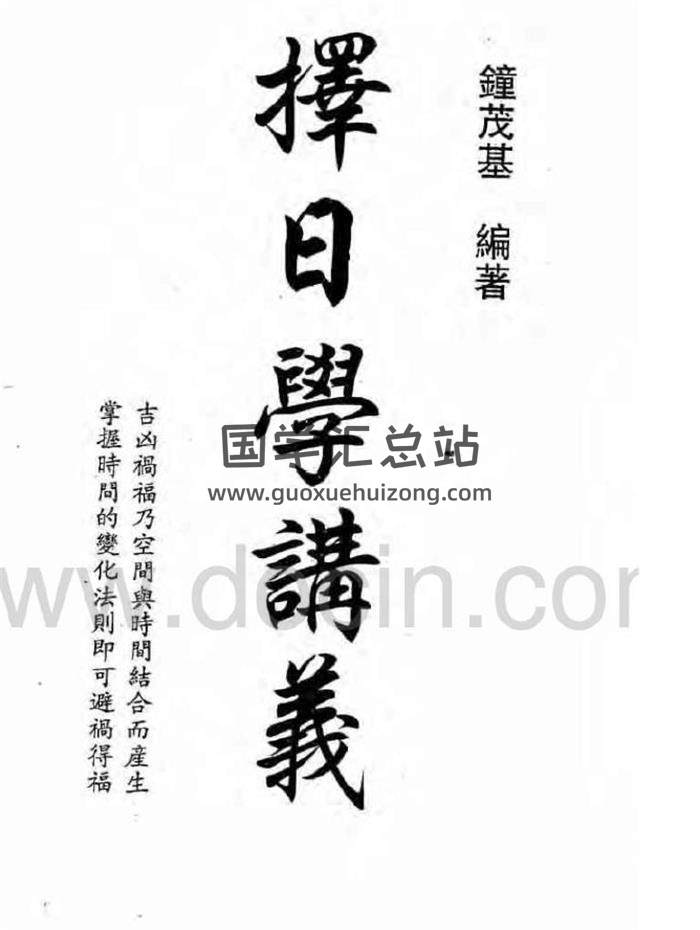 鐘茂基 編著
擇日學講義
吉凶禍福乃空間與時間結合而産生
掌握時間的變化法則即可避禍得福
国学汇总站
www.guoxuehuizong.com
ww.docin.com